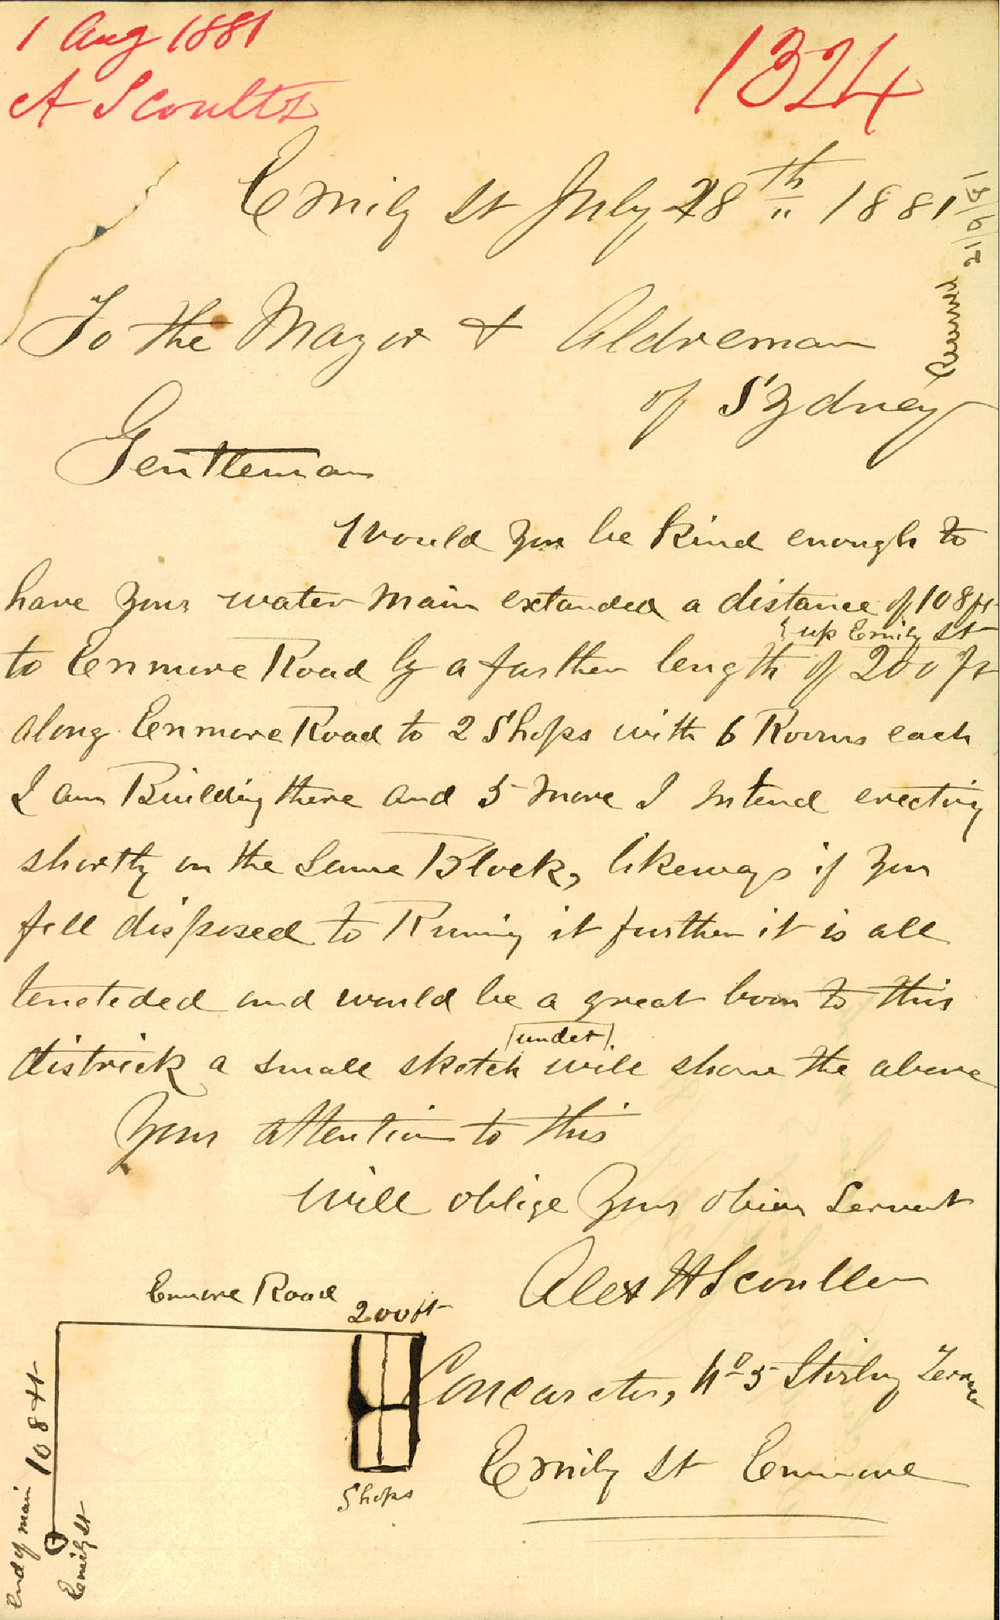 1 Aug 1881
A Scoults
1324
Emily St July 28th 1881
21/9/81
To the Mayor & Aldreman
of Sydney
Gentleman
Would you be kind enough to
have your water main extanded a distance of 108 ft
up Emily St
to Enmore Road by a further length of 200 ft
along Enmore Road to 2 Shops with 6 Rooms each
I am Building there and 5 more I Intend erecting
shortly on the Same Block, likeways if you
fell disposed to Runing it further it is all
tenateded and would be a great boon to this
under
districk a small sketch will show the above
Your attention to this
will oblige Your Servant
Alex H Scouller
No 5 Stirling Terrace
Emily St Enmore
Enmore Road
200 ft
108 ft
Shops
End of main
Emily St